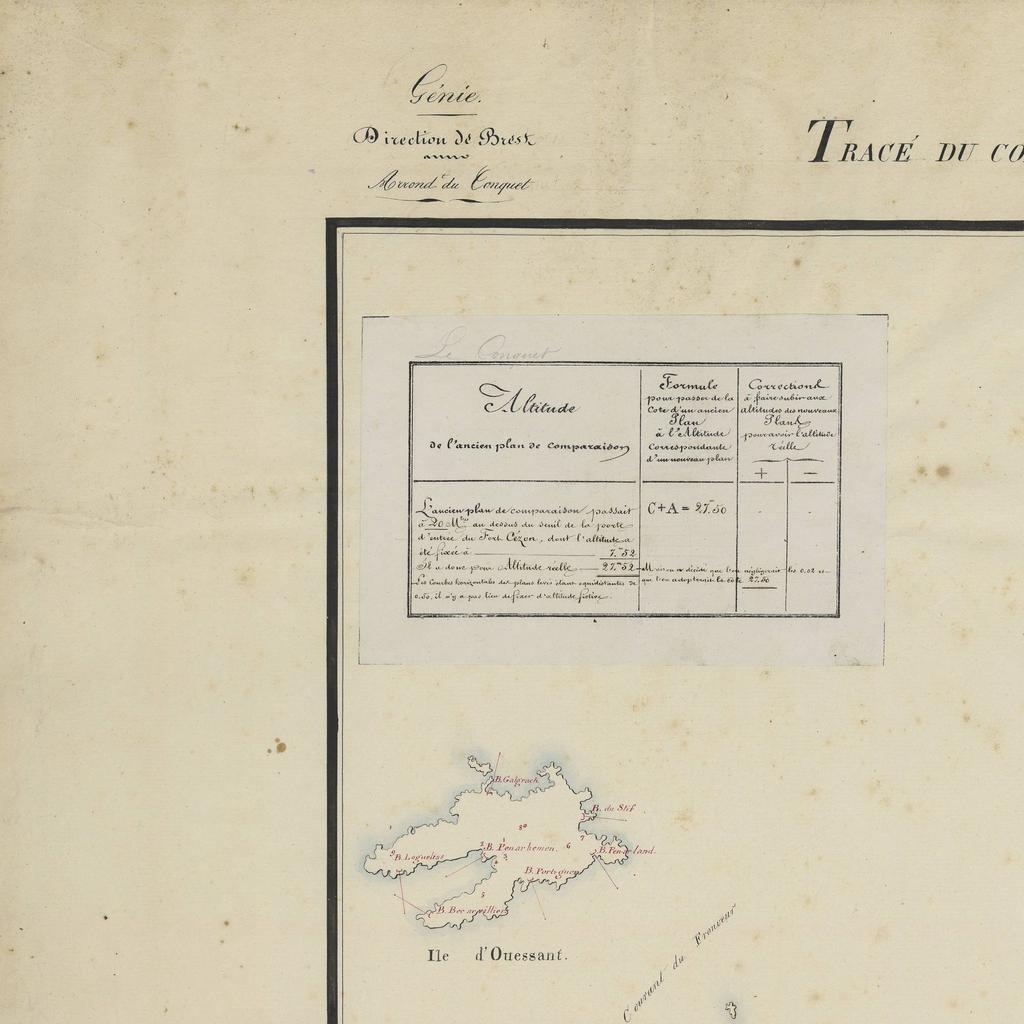 Génie.
Direction de Brest
Arrond.t du Conquet
TRACÉ DU CO
Le Conquet
Altitude
de l'ancien plan de comparaison
Formule
pour passer de la
Cote d'un ancien
Plan
à l'Altitude
correspondante
d'un nouveau plan
Corrections
à faire subir aux
altitudes des nouveaux
Plans
pour avoir l'altitude
réelle
+ –
L'ancien plan de comparaison passait
à 20 M.tres au dessus du seuil de la porte
d'entrée du Fort Cézon, dont l'altitude a
été fixée à 7.m 52
Il a donc pour Altitude réelle 27.m 52
Les Courbes horizontales des plans levés étant equidistantes de
0.50, il n'y a pas lieu de fixer d'altitude fictive.
C + A = 27.m 50
Mais on a décidé que l'on négligerait les 0.02 et
que l'on adopterait la cote 27.50
B. Galgrach
B. du Stif
8
7
6
B. Penarhemen.
3
B. Pen ar land.
B. Logueltas
B. Portuguen
5
Ile d'Ouessant.
Courant du Fromveur